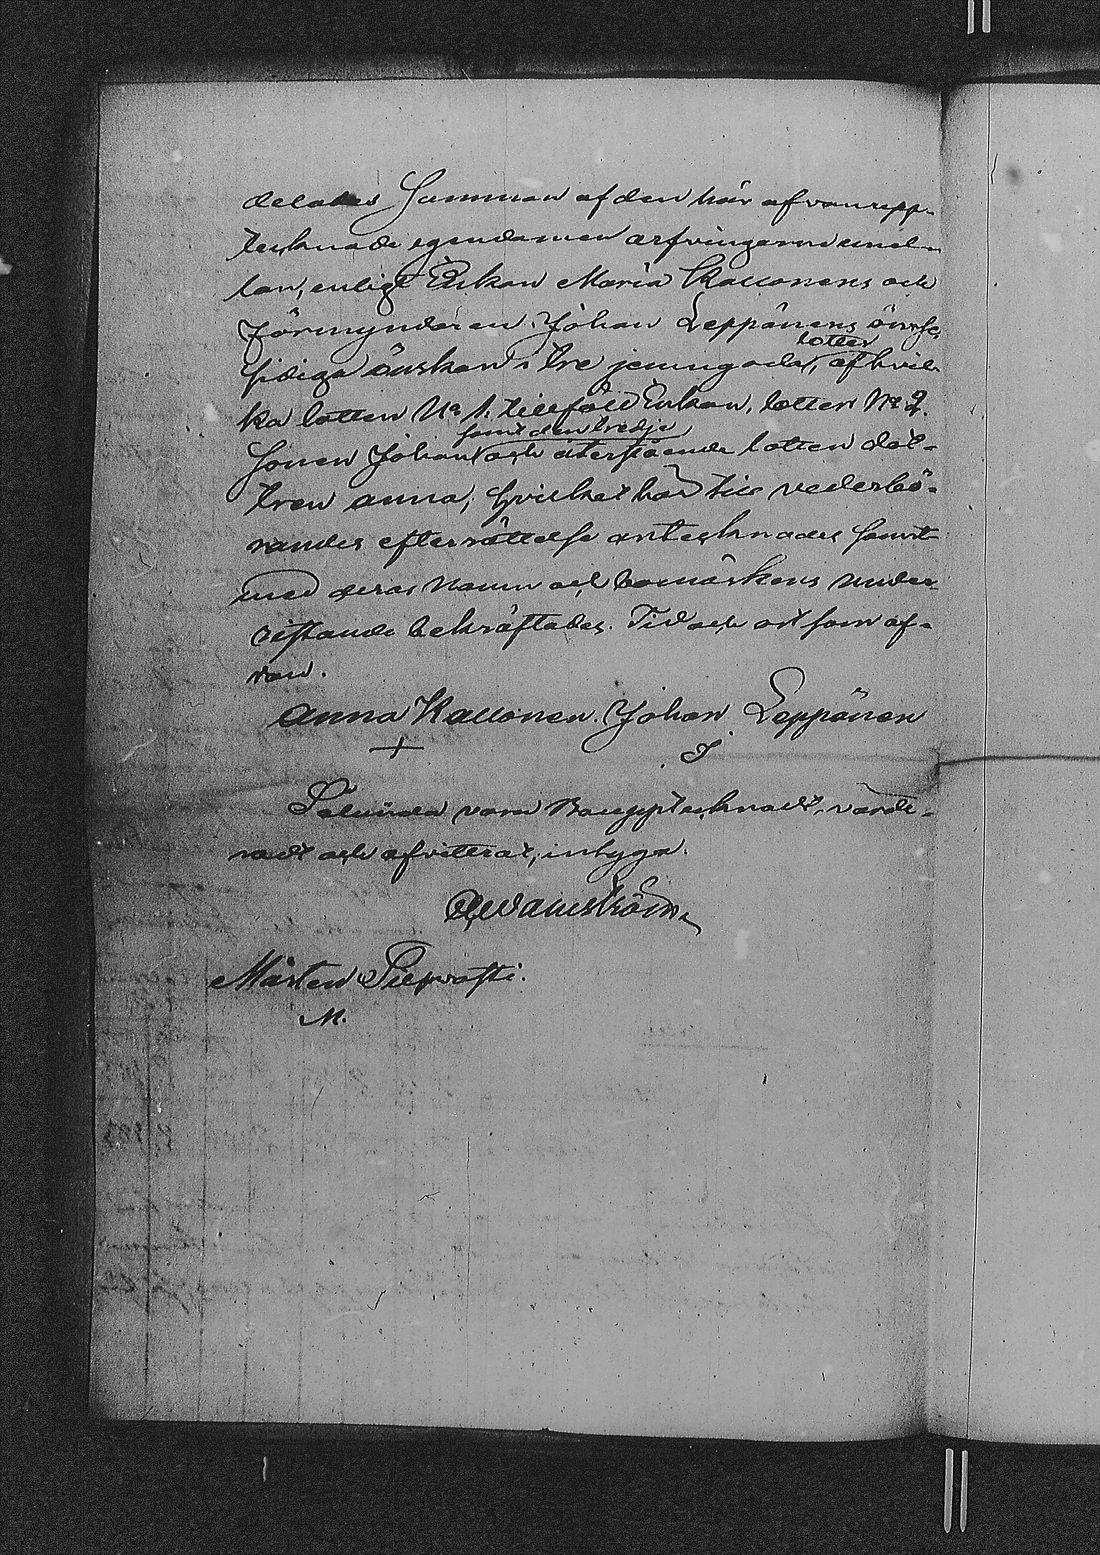 delades Summan af den här afvan upp-
tecknade egendomen arfvingarne emel-
lan, enligt Enkan Maria Kallonens och
Förmyndaren Johan Leppänens ömse
sidiga önskan i tre jemngoda lotter, af hvil-
ka lotten No 1. tillföll Enkan, lotten No 2.
Sonen Johan samt den tredje och återstående lotten dot-
tren Anna, hvilket här till vederbö-
randes efterrättelse antecknades samt
med deras Namn och bomärkens under
ristande bekräftades. Tid och ort som of-
van.
Anna Kallonen. Johan Leppänen
+ J
Sålunda vara Bouppteknadt, värde-
radt och afvittrat, intyga.
Mårten
M.